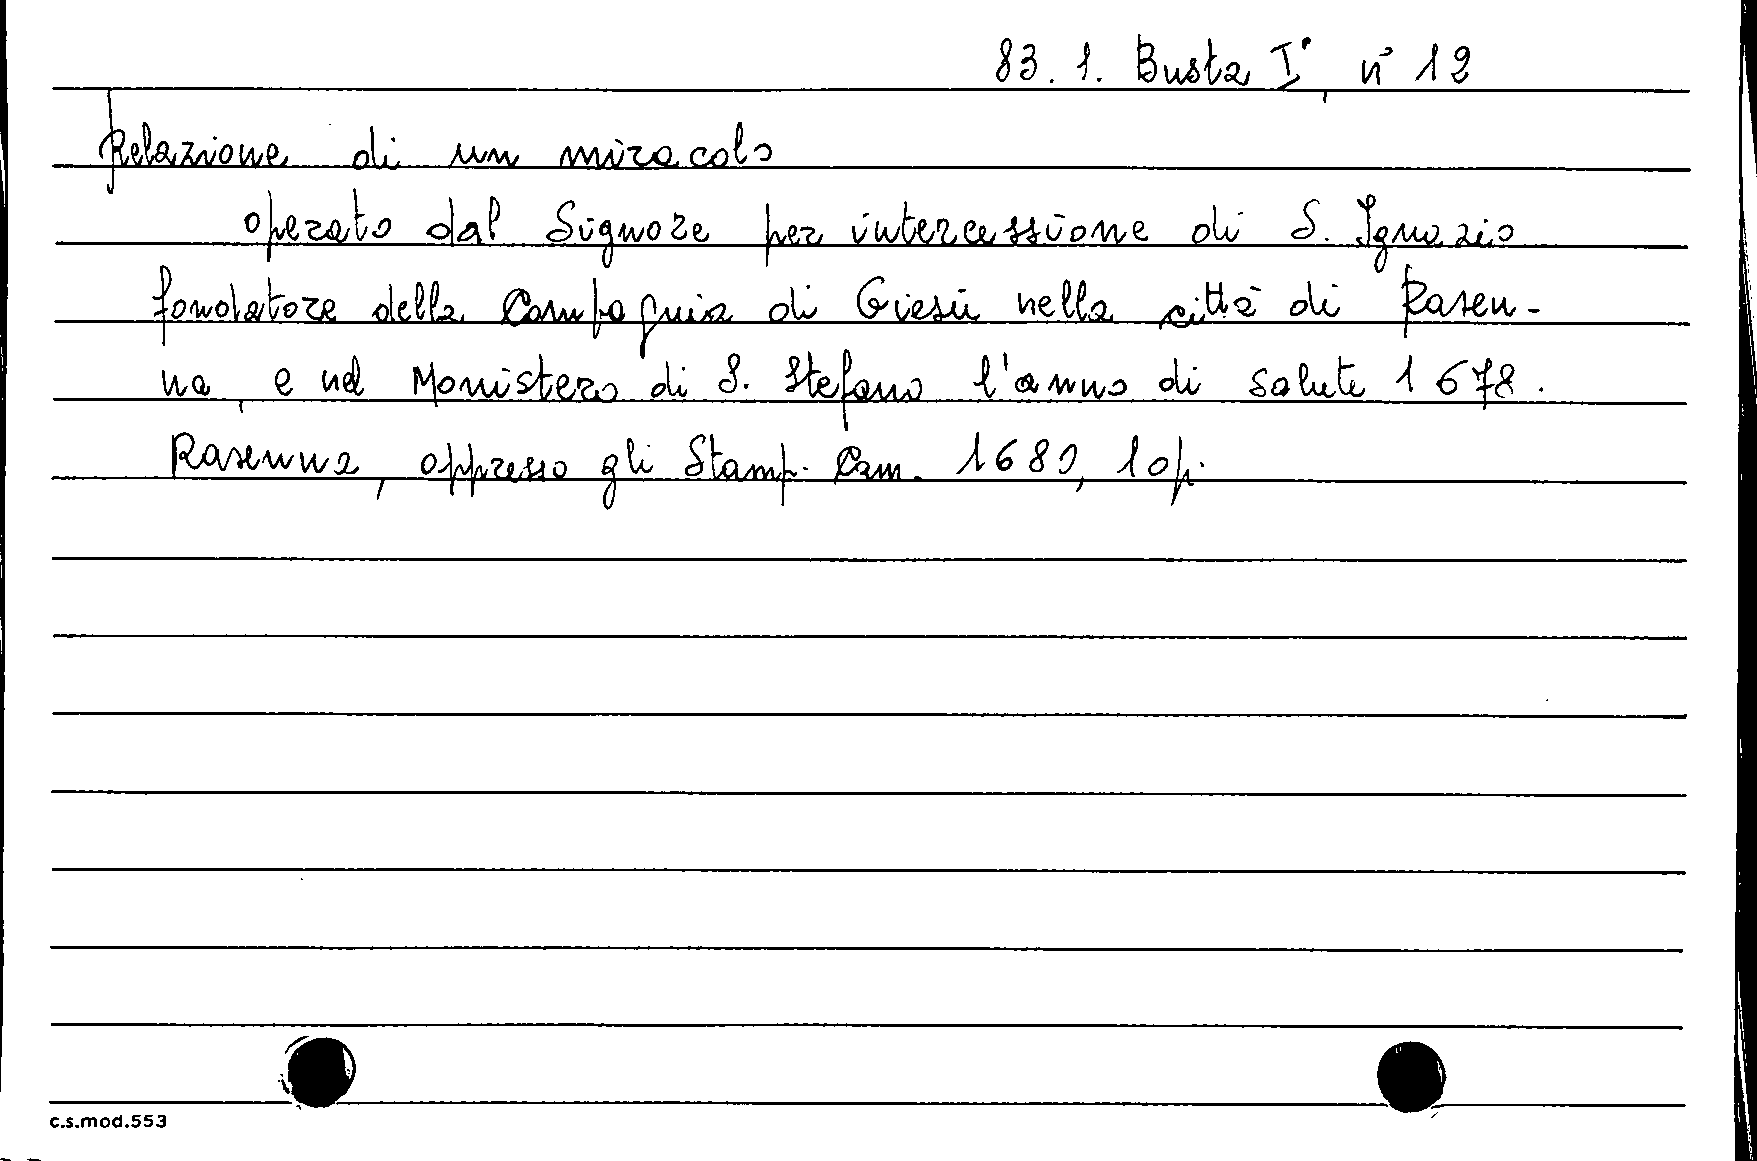 83. 1. Busta I°, n° 12
Relazione di un miracolo
operato dal Signore per intercessione di S. Ignazio
fondatore della Compagnia di Giesù nella città di Raven-
na, e nel Monistero di S. Stefano l'anno di salute 1678.
Ravenna, appresso gli Stamp. Cam. 1680, 10 p.
c.s.mod.553